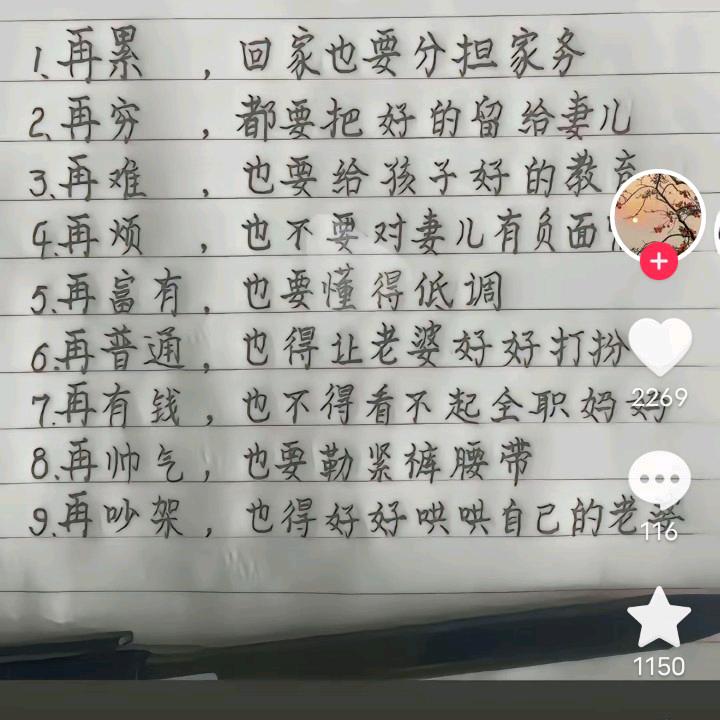 1.再累，回家也要分担家务
2.再穷，都要把好的留给妻儿
3.再难，也要给孩子好的教育
4.再烦，也不要对妻儿有负面
5.再富有，也要懂得低调
6.再普通，也得让老婆好好打扮
7.再有钱，也不得看不起全职妈妈
8.再帅气，也要勒紧裤腰带
9.再吵架，也得好好哄哄自己的老婆
2269
116
1150